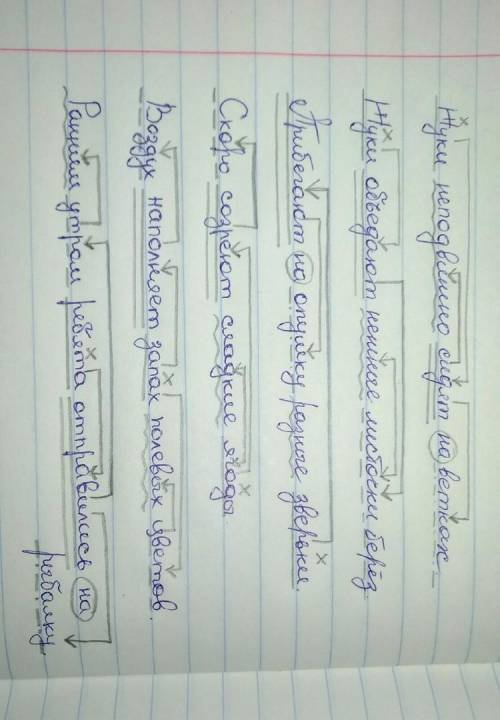 Жуки неподвижно сидят на ветках.
Жуки объедают нежные листочки берёз.
Прибегают на опушку разные зверьки.
Скоро созреют сладкие ягоды.
Воздух наполняет запах полевых цветов.
Ранним утром ребята отправились на
рыбалку.